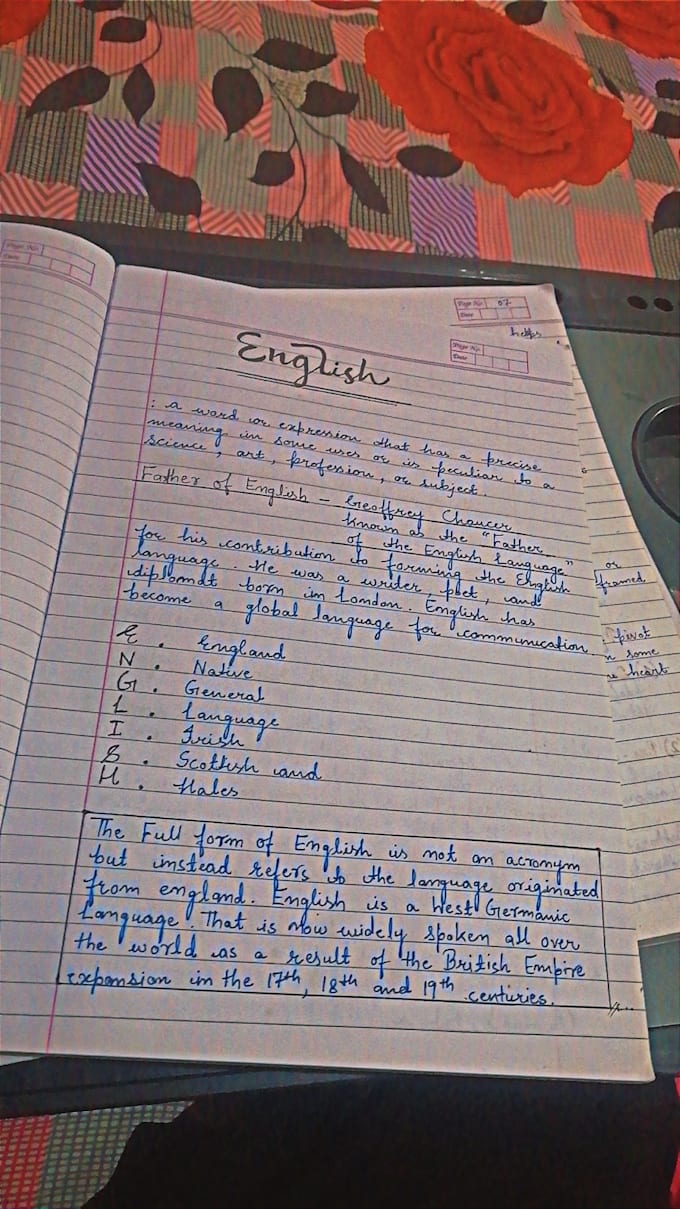 Page No.
Date
Page No. 07
Date
helps
Page No.
Date
English
: a word or expression that has a precise
meaning in some uses or is peculiar to a
science, art, profession, or subject.
Father of English - Geoffrey Chaucer
known as the "Father
of the English Language"
for his contribution to forming the English
language. He was a writer, poet, and
diplomat born in London. English has
become a global language for communication.
E . England
N . Native
G . General
L . Language
I . Irish
S . Scottish and
H . Hales
The Full form of English is not an acronym
but instead refers to the language originated
from england. English is a West Germanic
Language. That is now widely spoken all over
the world as a result of the British Empire
expansion in the 17th, 18th and 19th centuries.
or
framed
: pivot
n some
heart